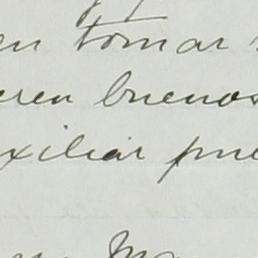 en tomar
eren buenos
xiliar pue